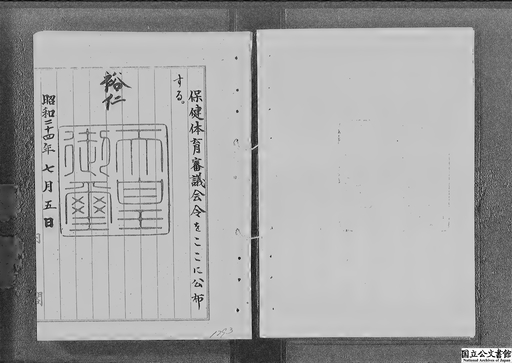 保健体育審議会令をここに公布
する。
裕仁
天皇
御璽
昭和二十四年七月五日
国立公文書館
National Archives of Japan